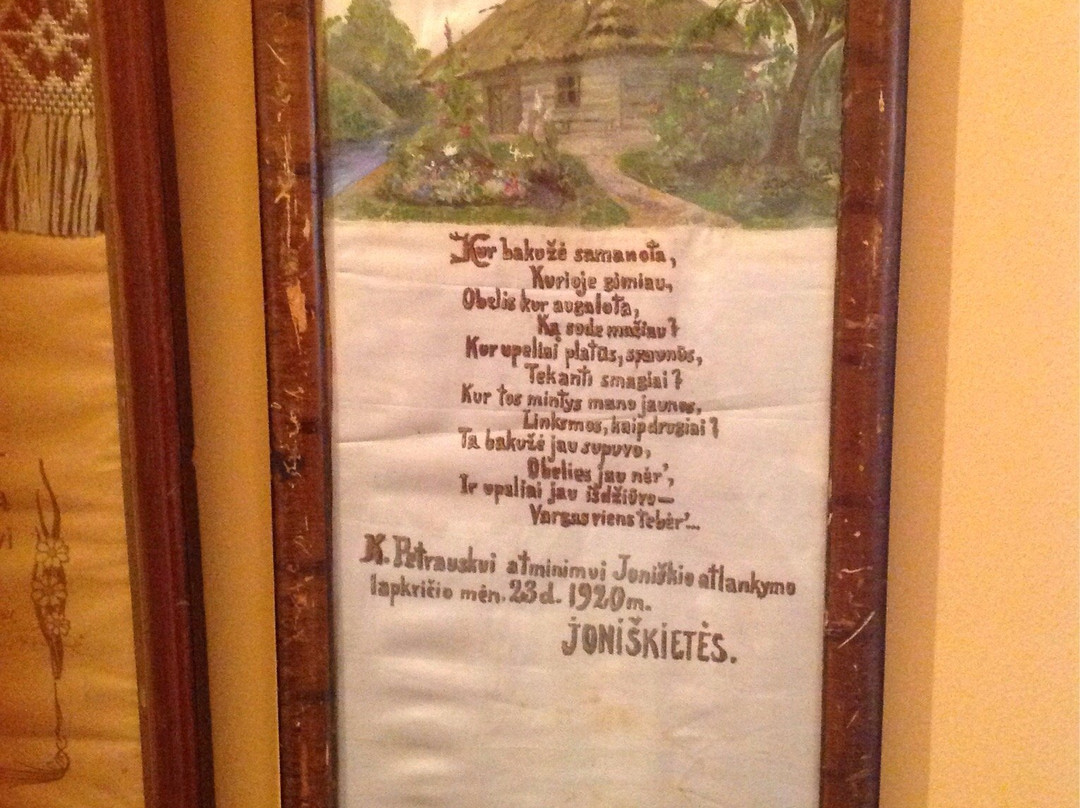 Kur bakužė samanota,
Kurioje gimiau,
Obelis kur augalota,
Ką sode mačiau?
Kur upeliai platūs, sraunūs,
Tekanti smagiai?
Kur tos mintys mano jaunos,
Linksmos, kaip drugiai?
Ta bakužė jau supuvo,
Obelies jau nėr',
Ir upeliai jau išdžiūvo—
Vargas viens tebėr'...
K. Petrauskui atminimui Joniškio atlankymo
lapkričio mėn. 23 d. 1920 m.
JONIŠKIETĖS.